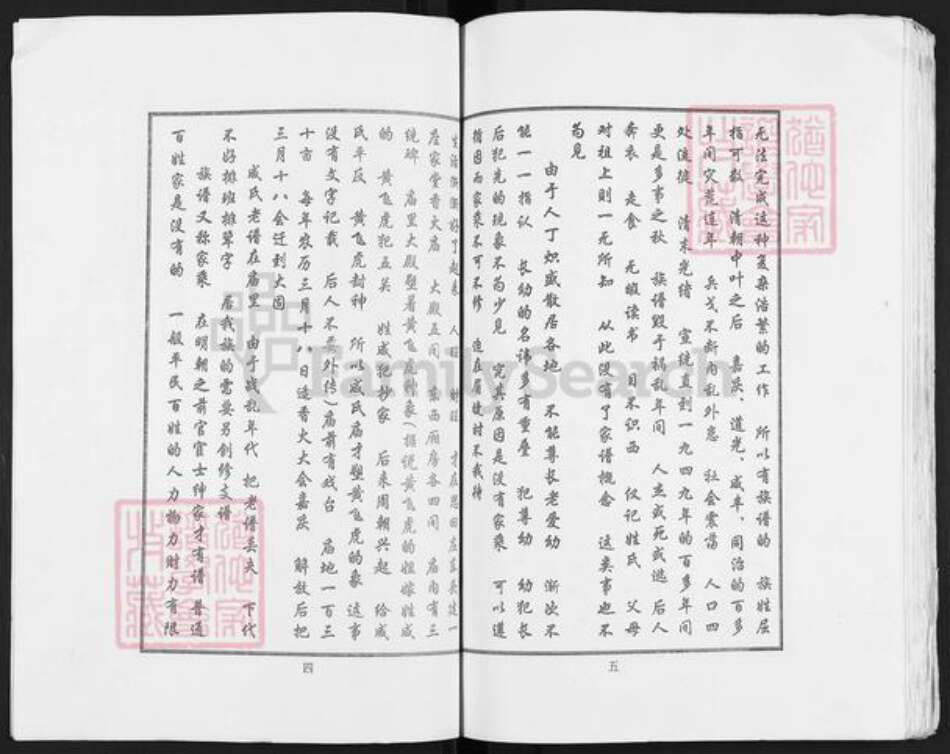 生活渐渐好了起来 人旺 财旺 才在思回庄庄东建一
座家堂香火庙 大殿五间 东西厢房各四间 庙内有三
统碑 庙里大殿塑着黄飞虎神象(据说黄飞虎的姐嫁姓成
的 黄飞虎犯五关 姓成犯抄家 后来周朝兴起 给成
氏平反 黄飞虎封神 所以成氏庙才塑黄飞虎的象 这事
没有文字记载 后人不要外传)庙前有戏台 庙地一百三
十亩 每年农历三月十八日逢香火大会 解放后把
三月十八会迁到大固
成氏老谱在庙里 由于战乱年代 把老谱丢失 下代
不好排班排辈字 居我族的需要另创修文谱
族谱又称家乘 在明朝之前官宦士绅家才有谱 普通
百姓家是没有的 一般平民百姓的人力物力财力有限
四
无法完成这种复杂浩繁的工作 所以有族谱的 族姓屈
指可数 清朝中叶之后 嘉庆、道光、咸丰、同治的百多
年间灾荒连年 兵戈不断内乱外患 社会震荡 人口四
处流徙 清末光绪 宣统直到一九四九年的百多年间
更是多事之秋 族谱毁于祸乱年间 人亡或死或逃 后人
奔衣 走食 无暇读书 目不识西 仅记姓氏 父母
对祖上则一无所知 从此没有了家谱概念 这类事也不
茍见
由于人丁炽盛散居各地 不能尊长老爱幼 渐次不
能一一指认 长幼的名讳多有重叠 犯尊幼 幼犯长
后犯先的现象不为少见 究其原因是没有家乘 可以遵
循因而家乘不可不修 迫在眉捷时不我待
五
猶他家
譜學會
收藏
猶他家
譜學會
收藏
FamilySearch